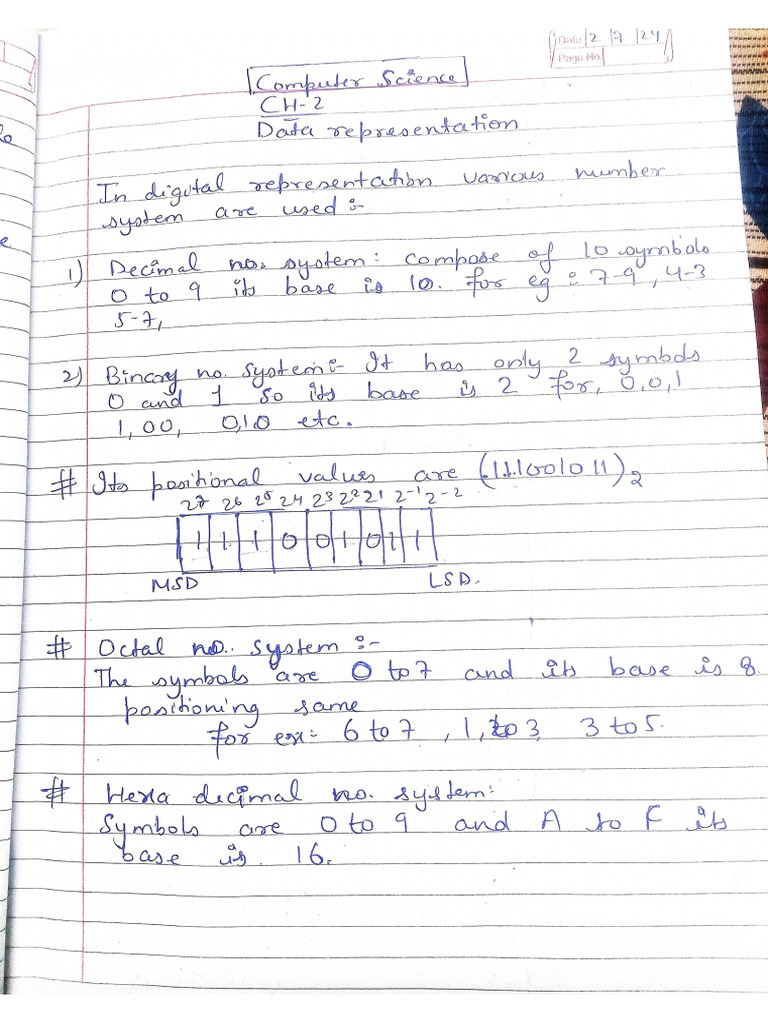 Date 2 7 24
Page No.
Computer Science
CH-2
Data representation
In digital representation various number
system are used :-
1) Decimal no. system: compose of 10 symbols
0 to 9 its base is 10. for eg : 7-9, 4-3
5-7,
2) Binary no. system:- It has only 2 symbols
0 and 1 so its base is 2 for, 0,0,1
1,00, 0,10 etc.
# Its positional values are (111001011)2
27 26 25 24 23 22 21 2-1 2-2
1 1 1 0 0 1 0 1 1
MSD LSD.
# Octal no. system :-
The symbols are 0 to 7 and its base is 8.
positioning same
for ex: 6 to 7 , 1, to 3, 3 to 5.
# Hexa decimal no. system:
Symbols are 0 to 9 and A to F its
base is 16.